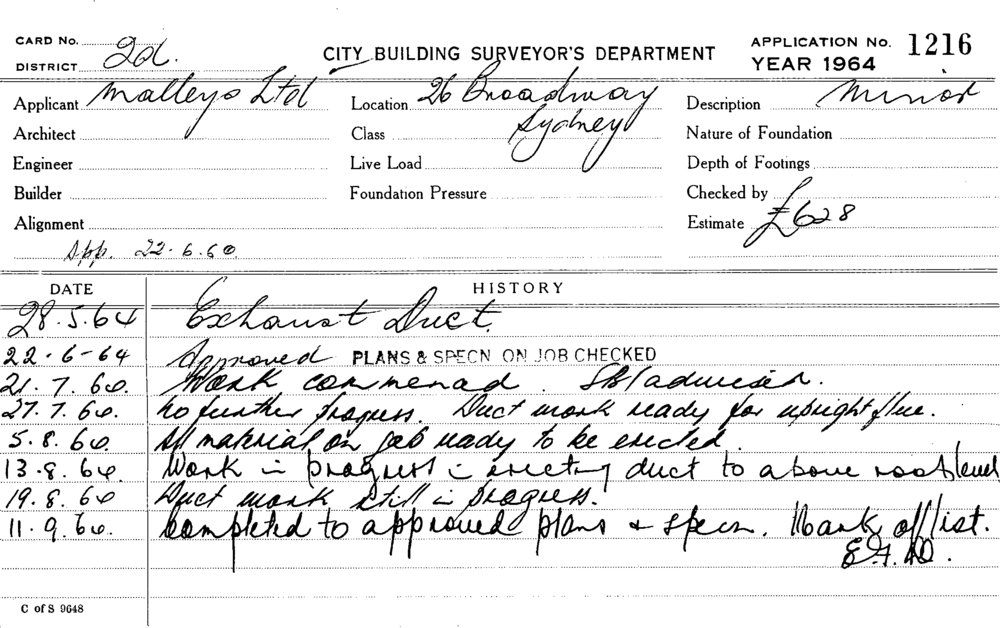 CARD No. 2d. CITY BUILDING SURVEYOR'S DEPARTMENT APPLICATION No. 1216
DISTRICT YEAR 1964
Applicant Malleys Ltd Location 26 Broadway Description Minor
Architect Class Sydney Nature of Foundation
Engineer Live Load Depth of Footings
Builder Foundation Pressure Checked by
Alignment Estimate £628
App. 22.6.64.
DATE HISTORY
28.5.64 Exhaust Duct.
22-6-64 Approved PLANS & SPECN ON JOB CHECKED
21.7.64. Work commenced.
27.7.64. No further progress. Duct work ready for upright flue.
5.8.64. All material on job ready to be erected.
13.8.64. Work in progress in erecting duct to above roof level
19.8.64 Duct work still in progress.
11.9.64. Completed to approved plans & specn. Mark off list.
C of S 9648